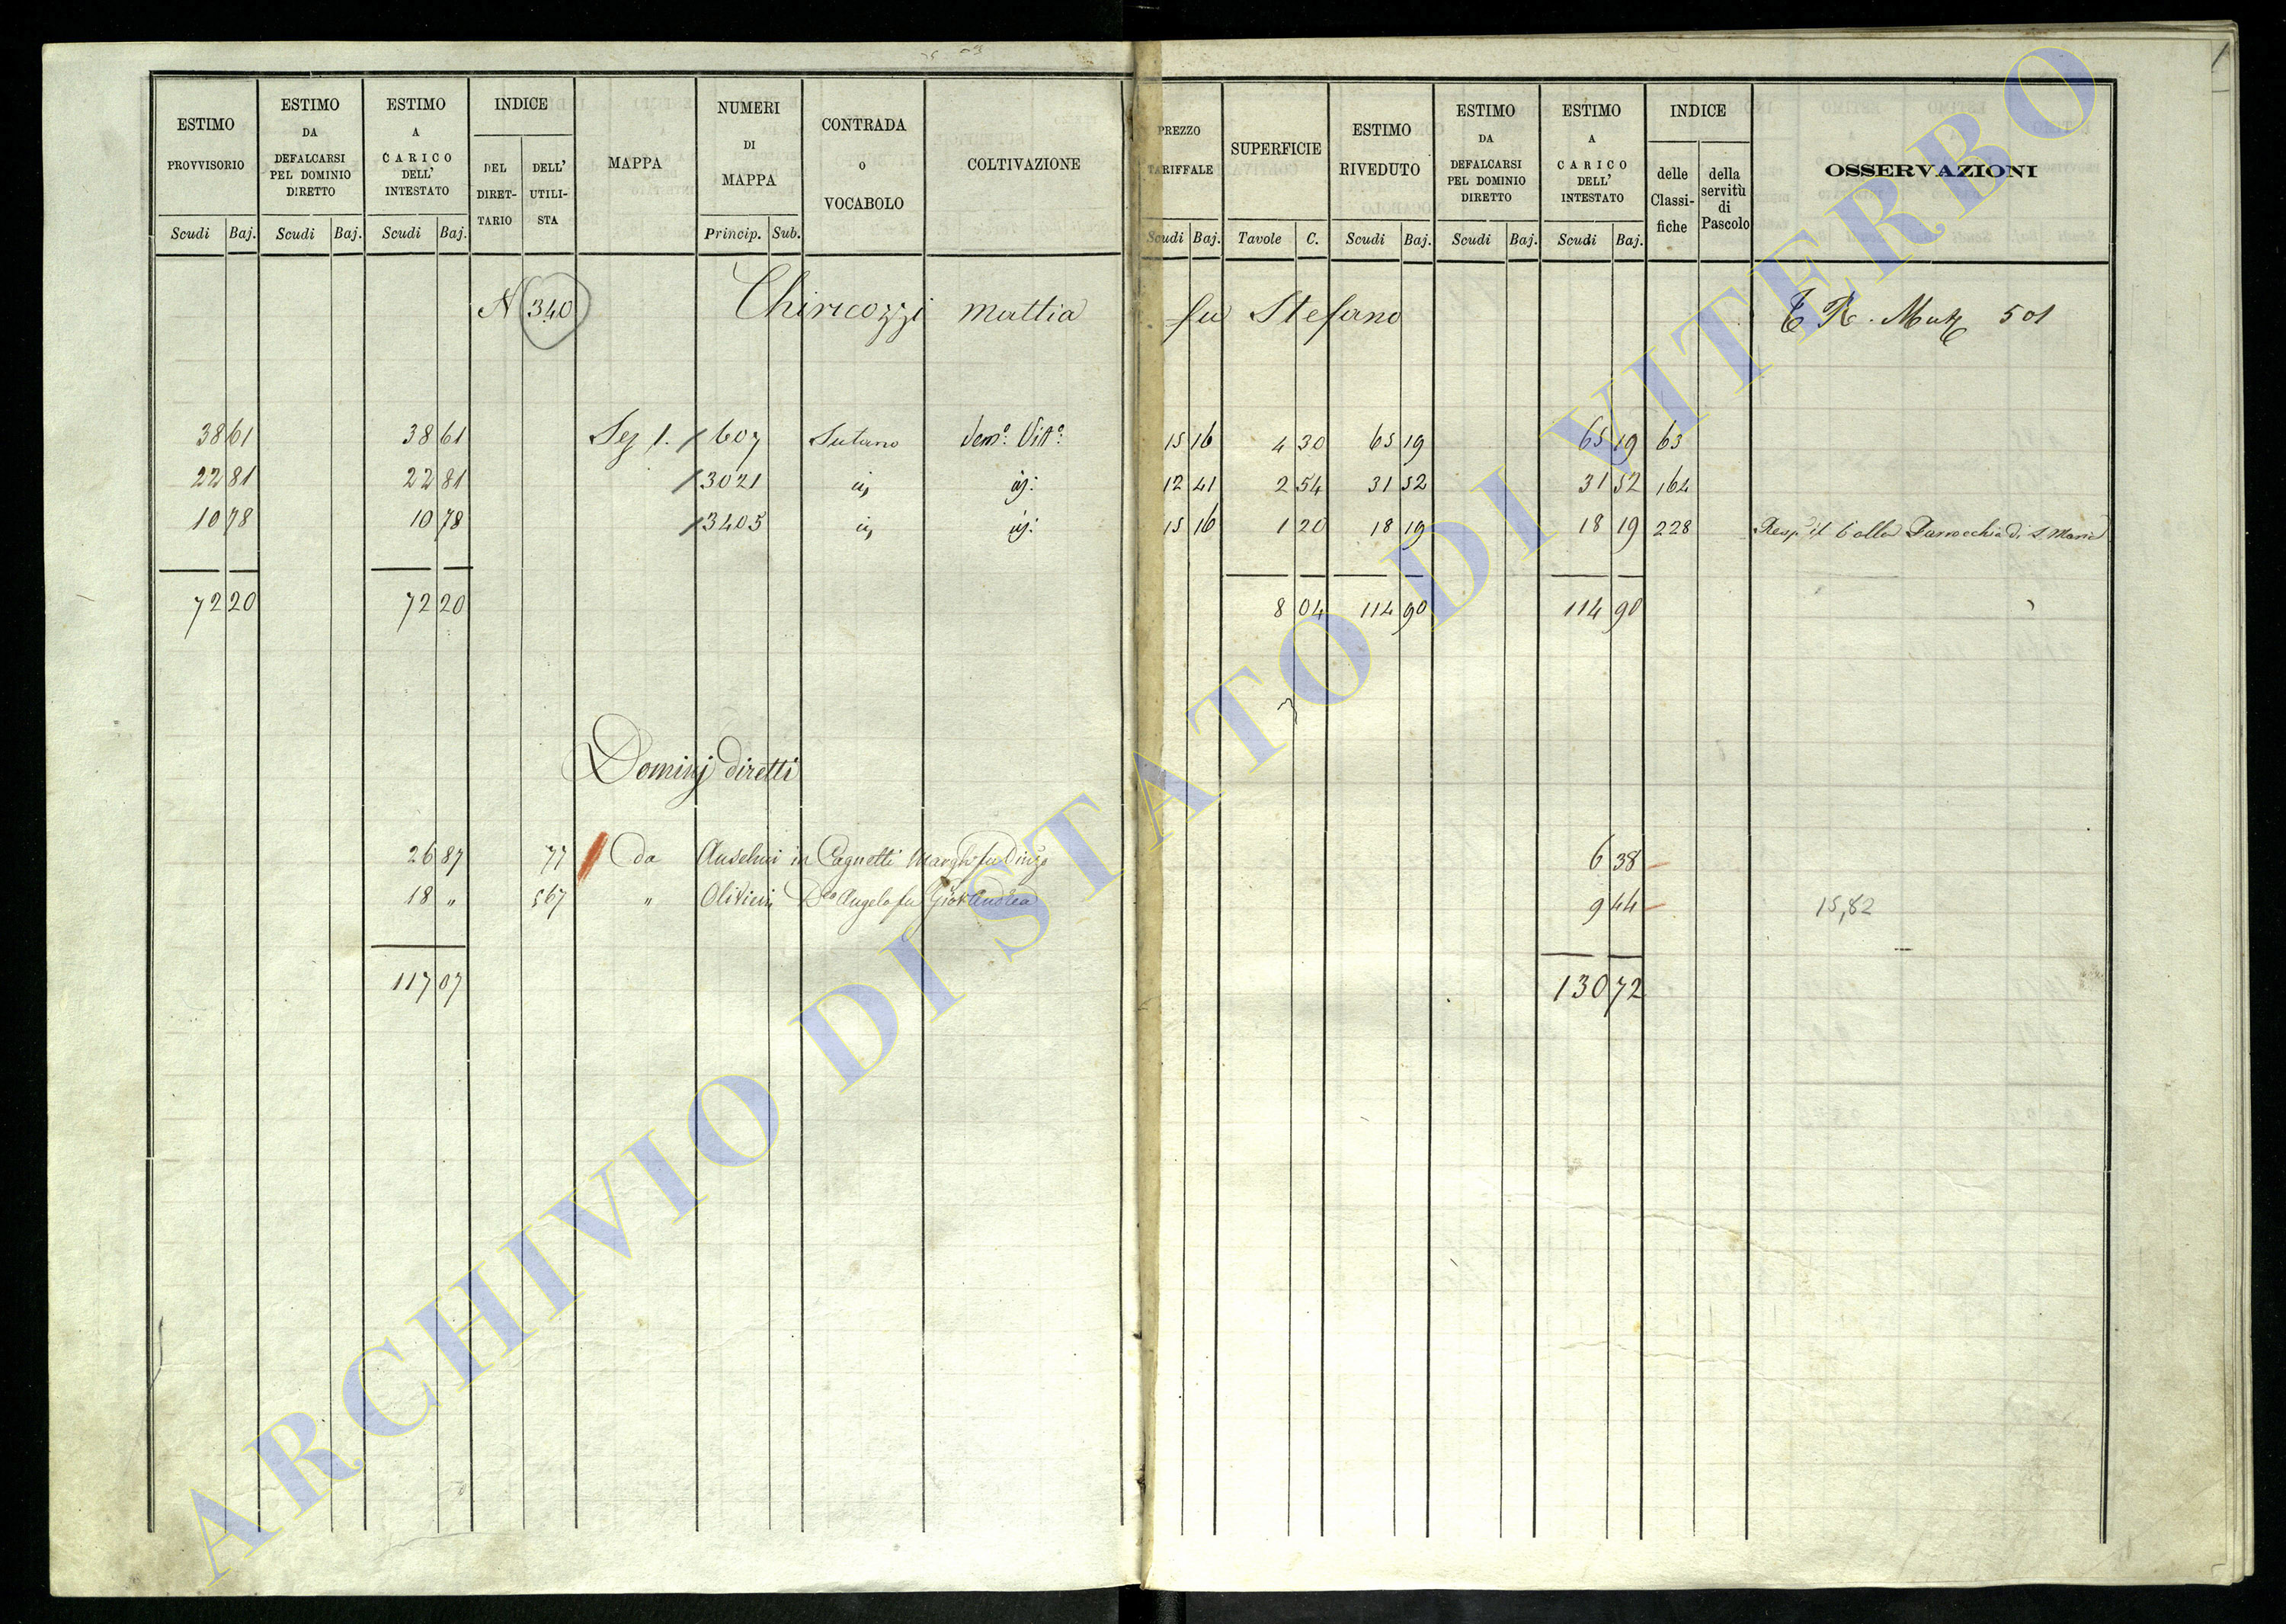 ESTIMO PROVVISORIO Scudi Baj.
ESTIMO DA DEFALCARSI PEL DOMINIO DIRETTO Scudi Baj.
ESTIMO A CARICO DELL' INTESTATO Scudi Baj.
INDICE DEL DIRET- TARIO DELL' UTILI- STA
MAPPA
NUMERI DI MAPPA Princip. Sub.
CONTRADA o VOCABOLO
COLTIVAZIONE
PREZZO TARIFFALE Scudi Baj.
SUPERFICIE Tavole C.
ESTIMO RIVEDUTO Scudi Baj.
ESTIMO DA DEFALCARSI PEL DOMINIO DIRETTO Scudi Baj.
ESTIMO A CARICO DELL' INTESTATO Scudi Baj.
INDICE delle Classi- fiche della servitù di Pascolo
OSSERVAZIONI
N 340 Chiricozzi Mattia fu Stefano 501
38 61 38 61 Sez 1. 607 Sutano Sem.o Vit.o 15 16 4 30 65 19 65 19 63
22 81 22 81 3021 12 41 2 54 31 52 31 52 164
10 78 10 78 3405 15 16 1 20 18 19 18 19 228 Parrocchia di S. Maria
72 20 72 20 8 04 114 90 114 90
Dominj diretti
26 87 77 Da Anselmi in Cagnetti 6 38
18 " 567 " Olivieri Angelo fu Andrea 9 44 15,82
117 07 130 72
ARCHIVIO DI STATO DI VITERBO